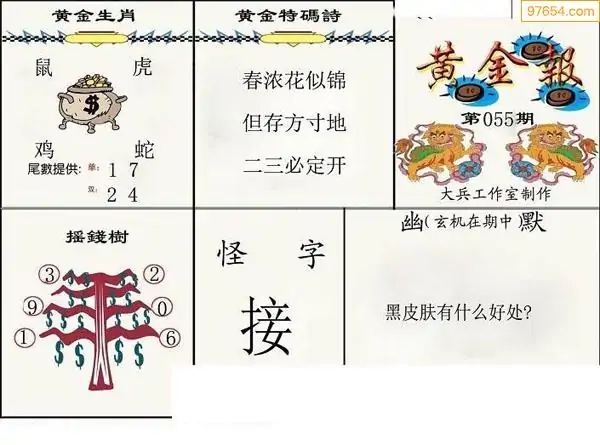 97654.com
黄金生肖
鼠 虎
$
鸡 蛇
尾數提供：單：1 7
双：2 4
黄金特碼詩
春浓花似锦
但存方寸地
二三必定开
黄金報
第055期
大兵工作室制作
摇錢樹
3 2
9 0
1 6
$ $ $ $ $ $ $ $
怪 字
接
幽(玄机在期中)默
黑皮肤有什么好处?